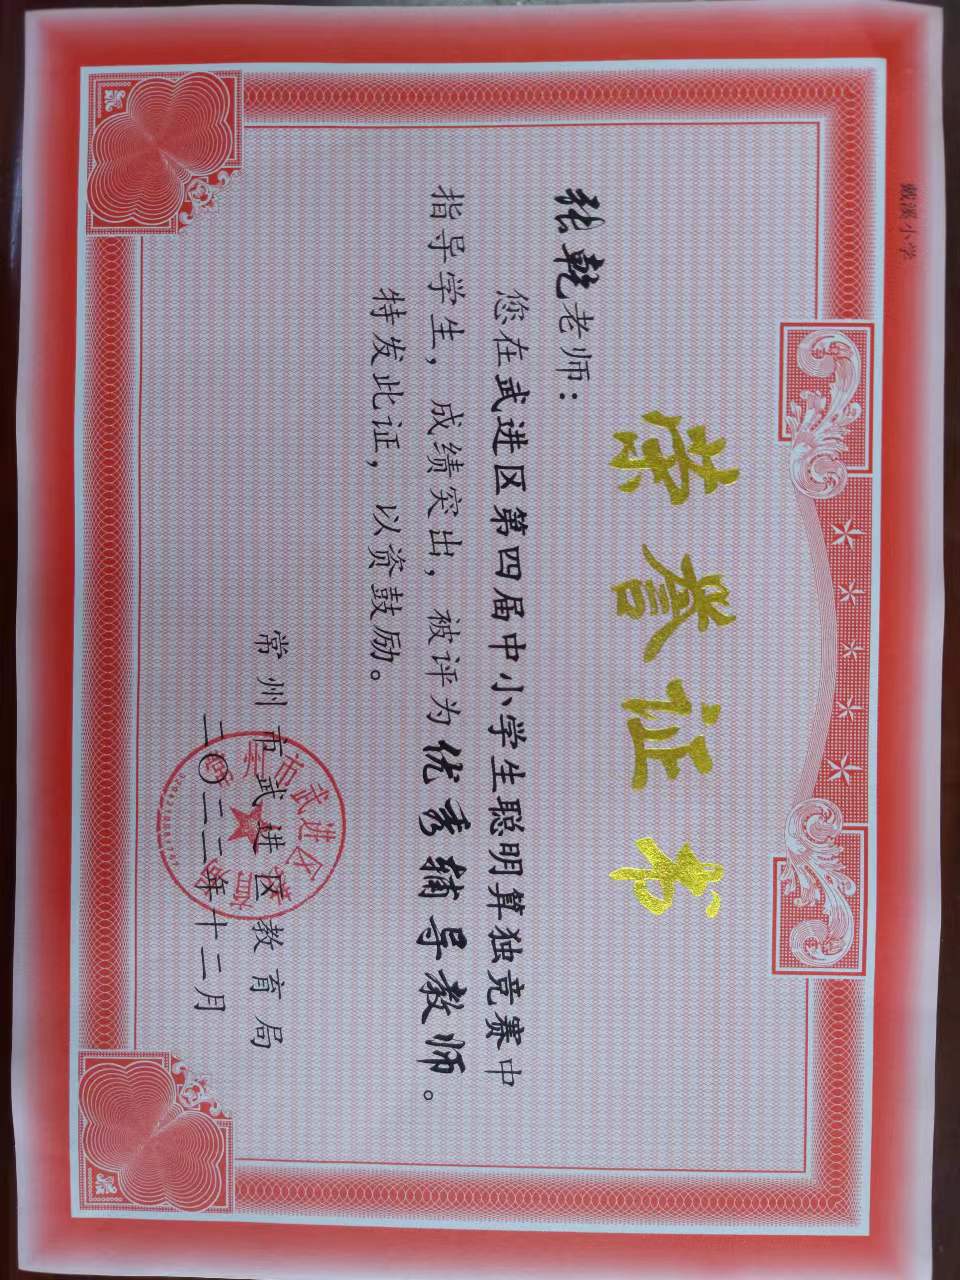 戴溪小学
荣誉证书
张乾老师：
您在武进区第四届中小学生聪明算独竞赛中
指导学生，成绩突出，被评为优秀辅导教师。
特发此证，以资鼓励。
常州市武进区教育局
二〇二二年十二月